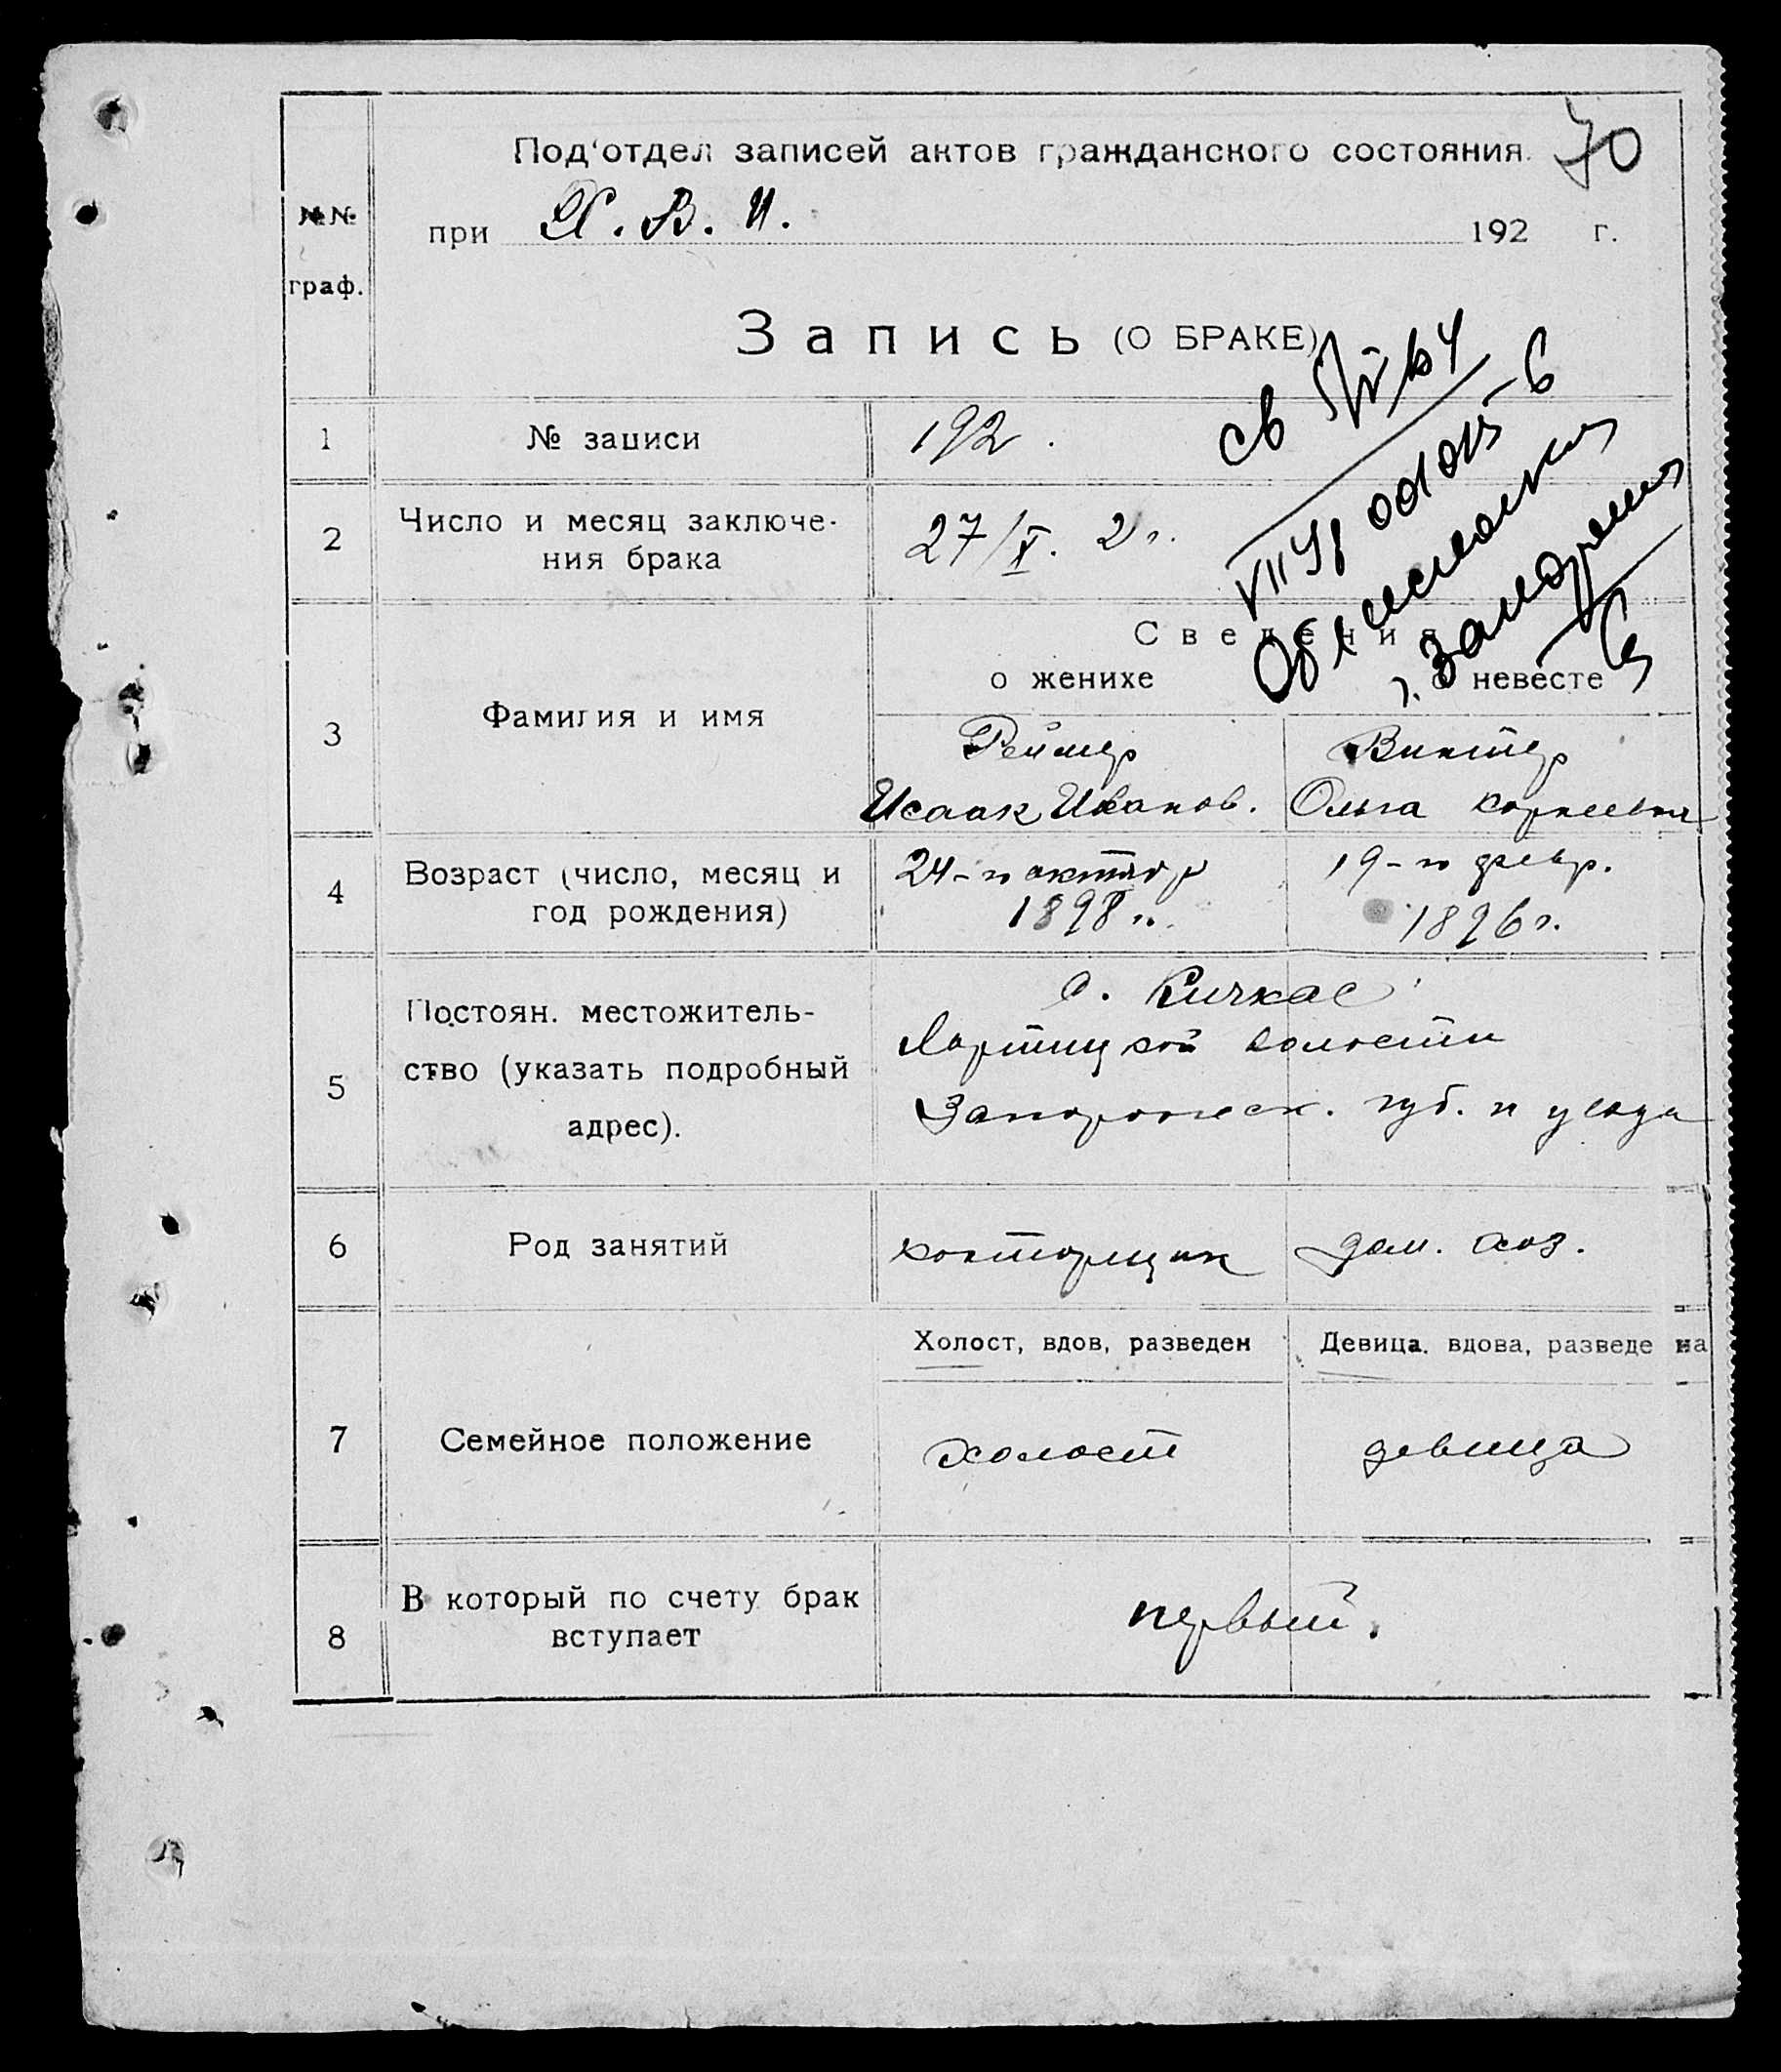 70
Под'отдел записей актов гражданского состояния.
№№ граф.
при Х. В. И. 192 г.
Запись (О БРАКЕ)
1 № записи 192.
2 Число и месяц заключе-
ния брака 27/X. 2 г.
Сведения
о женихе о невесте
3 Фамилия и имя
Реймер Винтер
Исаак Иванов. Ольга Корнеевна
4 Возраст (число, месяц и
год рождения)
24-го октябр 19-го февр.
1898 г. 1896 г.
5 Постоян. местожитель-
ство (указать подробный
адрес).
с. Кичкас
Хортицкой волости
Запорожск. губ. и уезда
6 Род занятий конторщик дом. хоз.
Холост, вдов, разведен Девица, вдова, разведена
7 Семейное положение холост девица
8 В который по счету брак
вступает первый.
св
VII
г.